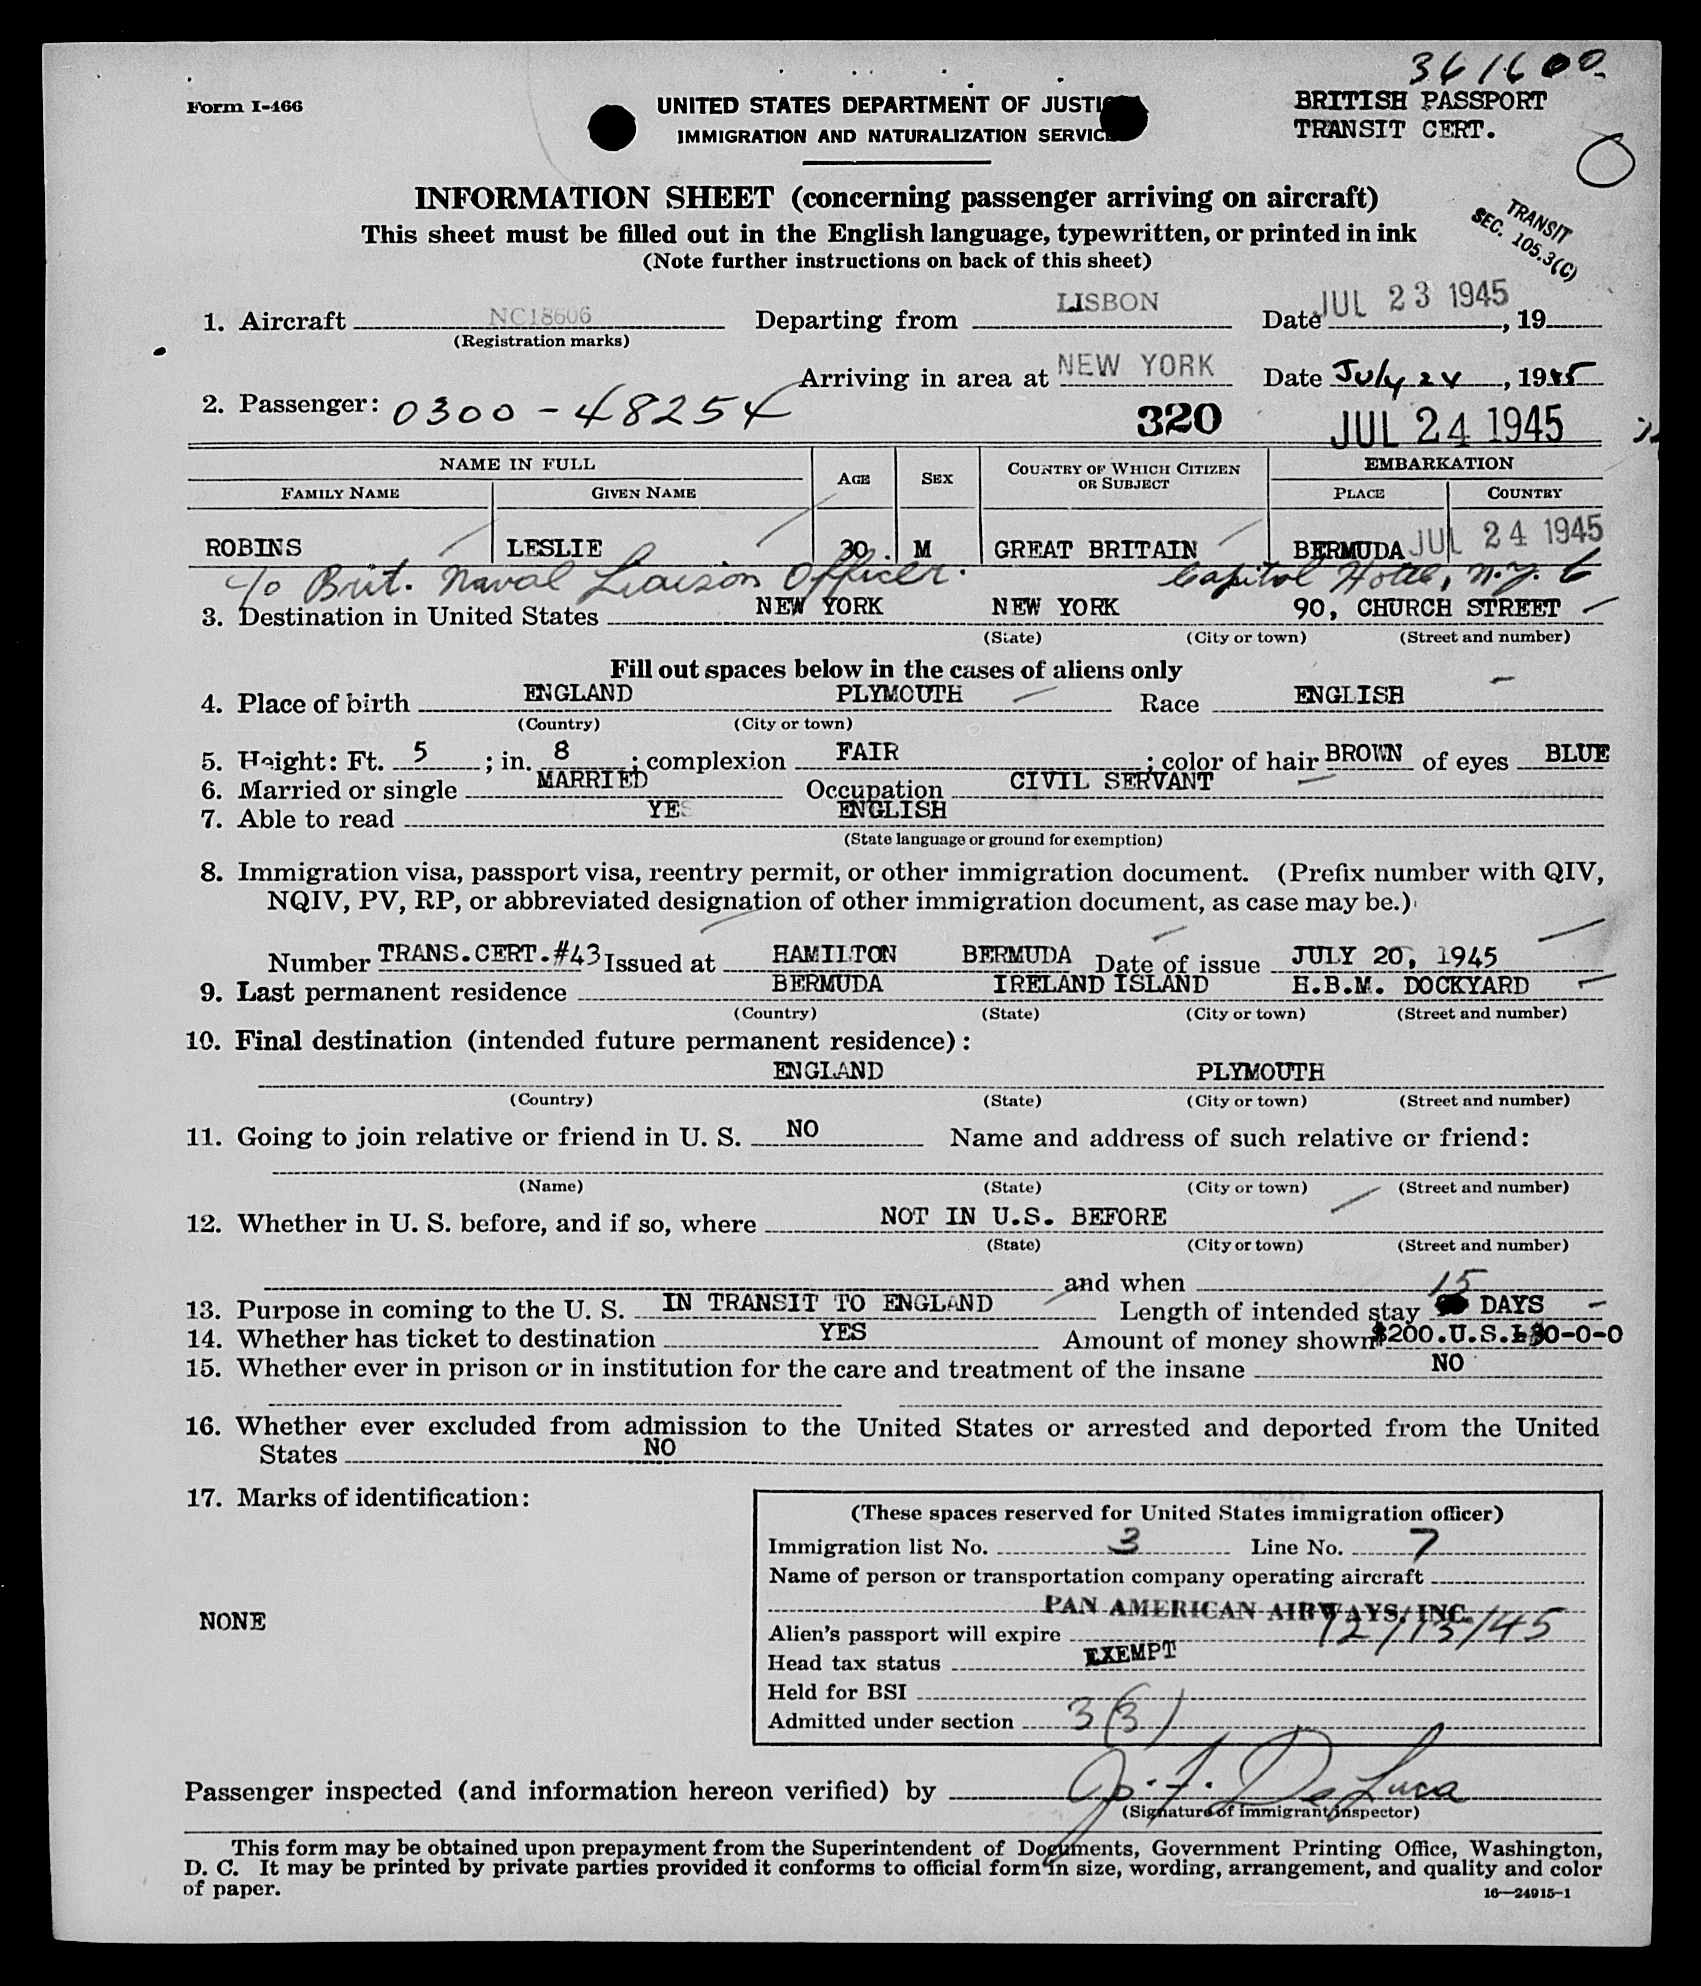 361600
Form I-466
UNITED STATES DEPARTMENT OF JUSTICE
BRITISH PASSPORT
IMMIGRATION AND NATURALIZATION SERVICE
TRANSIT CERT.
INFORMATION SHEET (concerning passenger arriving on aircraft)
TRANSIT
SEC. 105.3(C)
This sheet must be filled out in the English language, typewritten, or printed in ink
(Note further instructions on back of this sheet)
1. Aircraft NC18606 Departing from LISBON Date JUL 23 1945, 19
(Registration marks)
Arriving in area at NEW YORK Date July 24, 1945
2. Passenger: 0300-48254 320 JUL 24 1945
NAME IN FULL AGE SEX COUNTRY OF WHICH CITIZEN OR SUBJECT EMBARKATION
FAMILY NAME GIVEN NAME PLACE COUNTRY
ROBINS LESLIE 30. M GREAT BRITAIN BERMUDA JUL 24 1945
c/o Brit. Naval Liaison Officer. Capitol Hotel, N.Y.C
3. Destination in United States NEW YORK NEW YORK 90, CHURCH STREET
(State) (City or town) (Street and number)
Fill out spaces below in the cases of aliens only
4. Place of birth ENGLAND PLYMOUTH Race ENGLISH
(Country) (City or town)
5. Height: Ft. 5; in. 8; complexion FAIR; color of hair BROWN of eyes BLUE
6. Married or single MARRIED Occupation CIVIL SERVANT
7. Able to read YES ENGLISH
(State language or ground for exemption)
8. Immigration visa, passport visa, reentry permit, or other immigration document. (Prefix number with QIV,
NQIV, PV, RP, or abbreviated designation of other immigration document, as case may be.)
Number TRANS.CERT.#43 Issued at HAMILTON BERMUDA Date of issue JULY 20, 1945
9. Last permanent residence BERMUDA IRELAND ISLAND H.B.M. DOCKYARD
(Country) (State) (City or town) (Street and number)
10. Final destination (intended future permanent residence):
ENGLAND PLYMOUTH
(Country) (State) (City or town) (Street and number)
11. Going to join relative or friend in U. S. NO Name and address of such relative or friend:
(Name) (State) (City or town) (Street and number)
12. Whether in U. S. before, and if so, where NOT IN U.S. BEFORE
(State) (City or town) (Street and number)
and when
13. Purpose in coming to the U. S. IN TRANSIT TO ENGLAND Length of intended stay 15 DAYS
14. Whether has ticket to destination YES Amount of money shown $200.U.S.£30-0-0
15. Whether ever in prison or in institution for the care and treatment of the insane NO
16. Whether ever excluded from admission to the United States or arrested and deported from the United
States NO
17. Marks of identification:
NONE
(These spaces reserved for United States immigration officer)
Immigration list No. 3 Line No. 7
Name of person or transportation company operating aircraft
PAN AMERICAN AIRWAYS, INC.
Alien's passport will expire 12/13/45
Head tax status EXEMPT
Held for BSI
Admitted under section 3(3)
Passenger inspected (and information hereon verified) by J. F. De Luca
(Signature of immigrant inspector)
This form may be obtained upon prepayment from the Superintendent of Documents, Government Printing Office, Washington,
D. C. It may be printed by private parties provided it conforms to official form in size, wording, arrangement, and quality and color
of paper.
16—24915-1